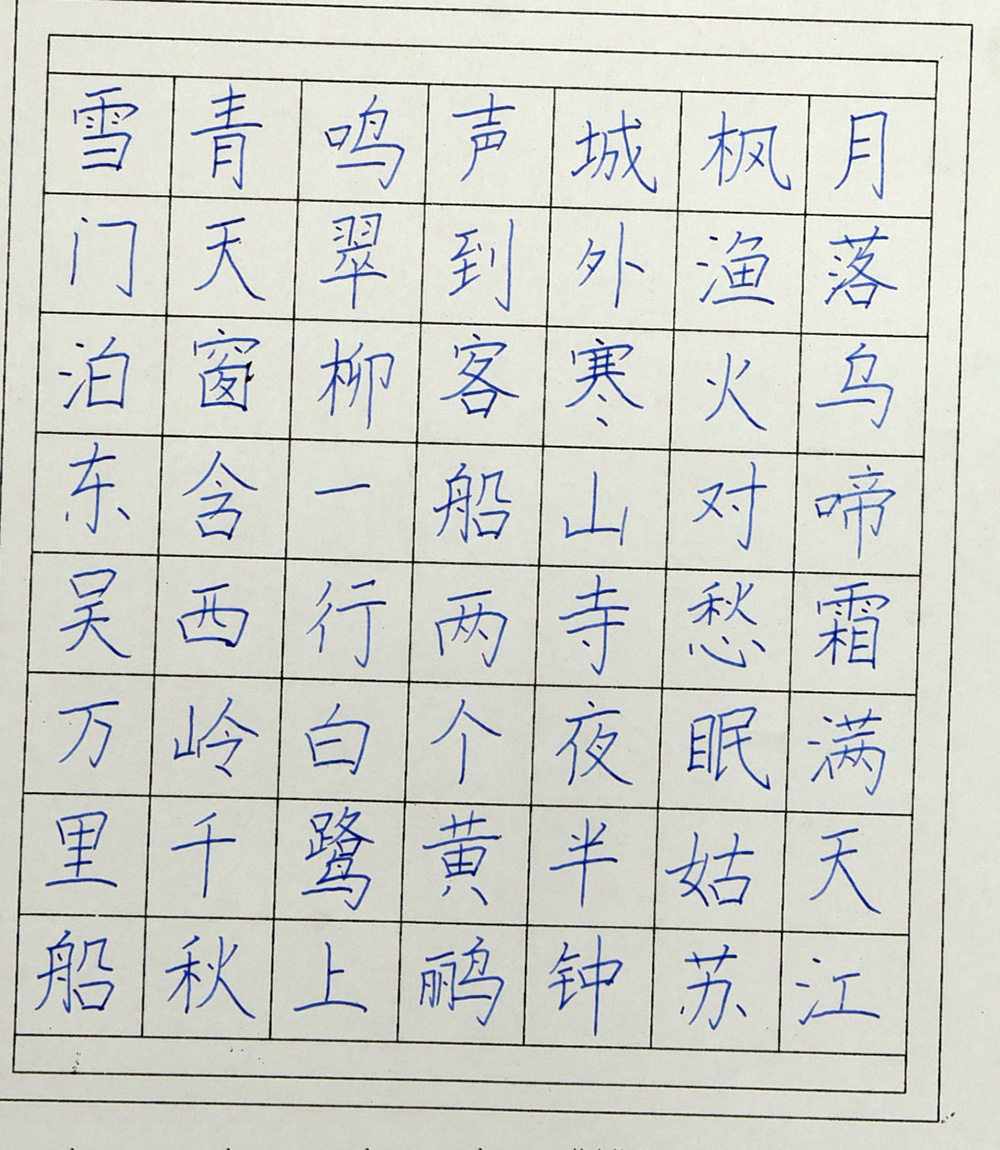 月落乌啼霜满天江
枫渔火对愁眠姑苏
城外寒山寺夜半钟
声到客船两个黄鹂
鸣翠柳一行白鹭上
青天窗含西岭千秋
雪门泊东吴万里船